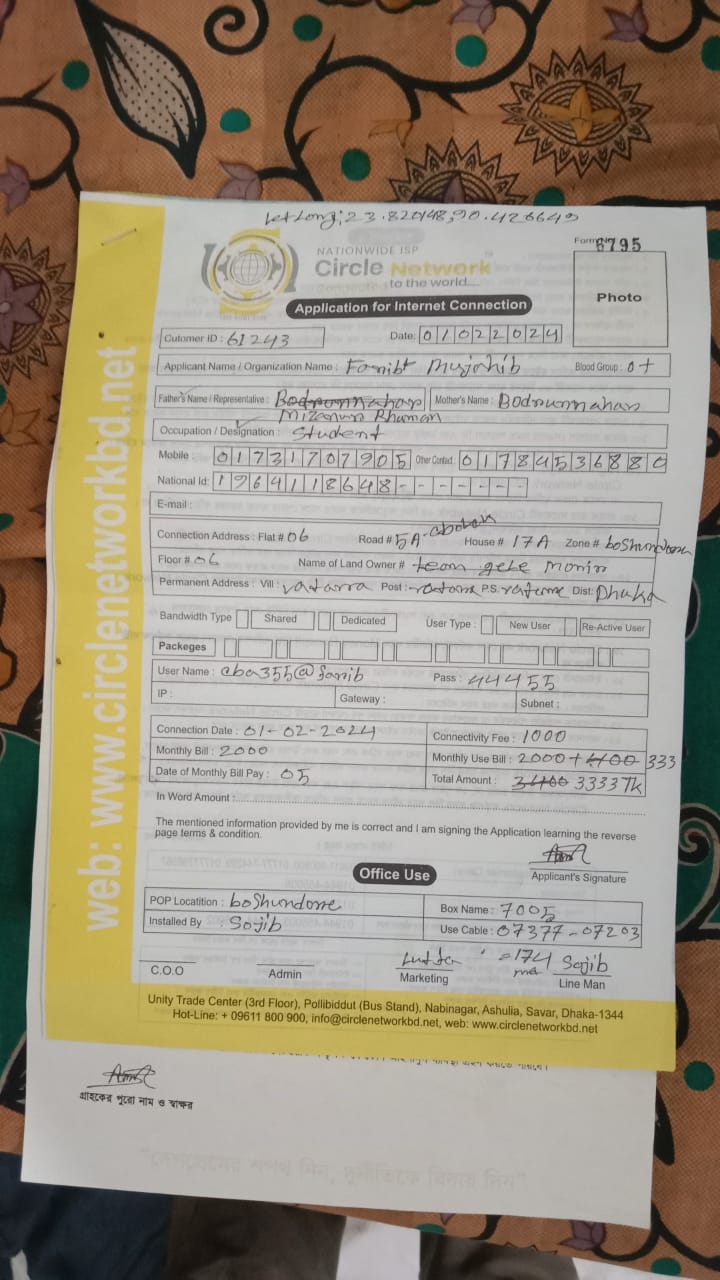 NATIONWIDE ISP
Circle Network
to the world....
Form 6795
Photo
Application for Internet Connection
Cutomer ID : 61243
Date: 01022024
Applicant Name / Organization Name :
Blood Group : o+
Father's Name / Representative :
Mother's Name : Bodrunnahar
Mizanur Rhuman
Occupation / Designation : Student
Mobile 01731707905 Other Contact : 01784536880
National Id: 1964118648-------
E-mail :
Connection Address : Flat # 06 Road # 5A House # 17A Zone #
Floor # 06 Name of Land Owner # team gete monir
Permanent Address : Vill : vatara Post : P.S Dist: Dhaka
Bandwidth Type Shared Dedicated User Type : New User Re-Active User
Packeges
User Name : Pass : 44455
IP : Gateway : Subnet :
Connection Date : 01-02-2024 Connectivity Fee : 1000
Monthly Bill : 2000 Monthly Use Bill : 2000+ 333
Date of Monthly Bill Pay : 05 Total Amount : 3333 Tk
In Word Amount :
The mentioned information provided by me is correct and I am signing the Application learning the reverse
page terms & condition.
Applicant's Signature
Office Use
POP Locatition : Box Name : 7005
Installed By : Sojib Use Cable : 07377-07203
Sojib
C.O.O Admin Marketing Line Man
Unity Trade Center (3rd Floor), Pollibiddut (Bus Stand), Nabinagar, Ashulia, Savar, Dhaka-1344
Hot-Line: + 09611 800 900, info@circlenetworkbd.net, web: www.circlenetworkbd.net
web: www.circlenetworkbd.net
গ্রাহকের পুরো নাম ও স্বাক্ষর